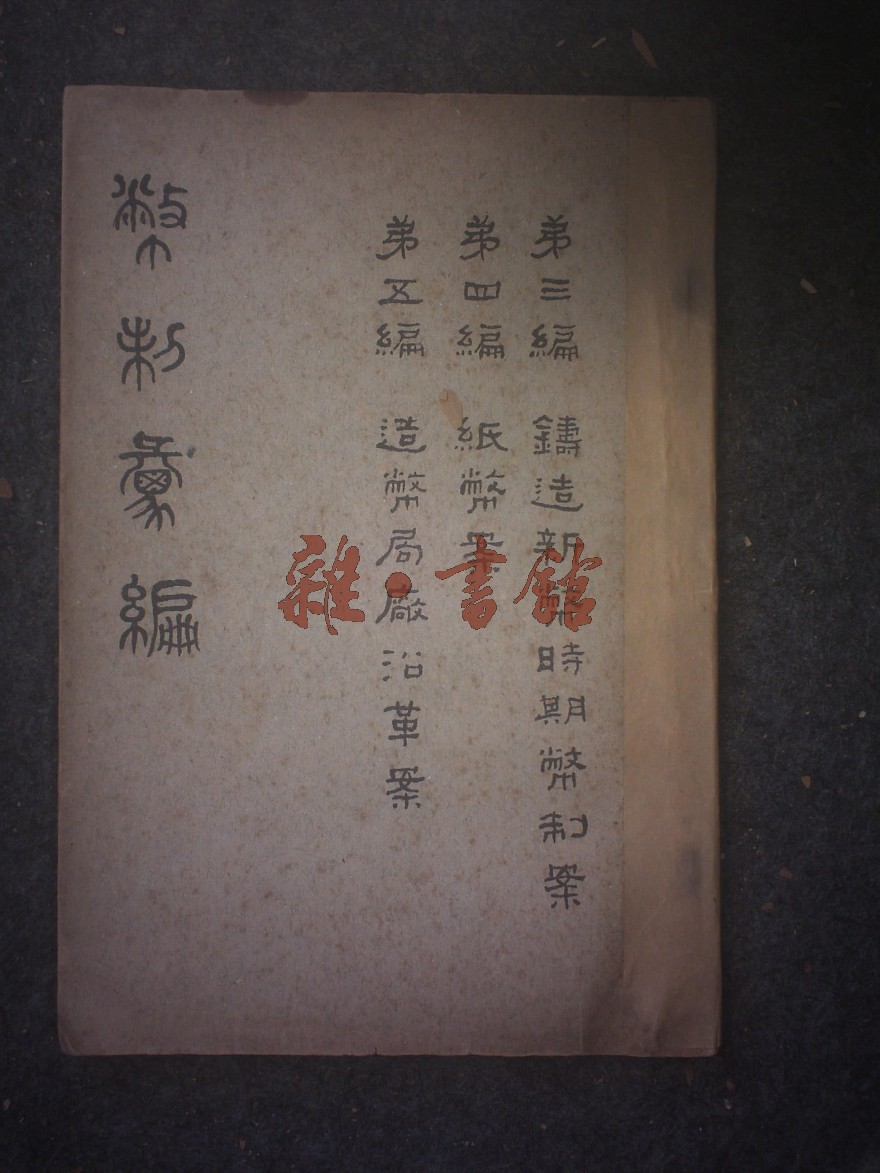 第三編 鑄造新幣時期幣制案
第四編 紙幣案
第五編 造幣局廠沿革案
幣制彙編
雜·書館